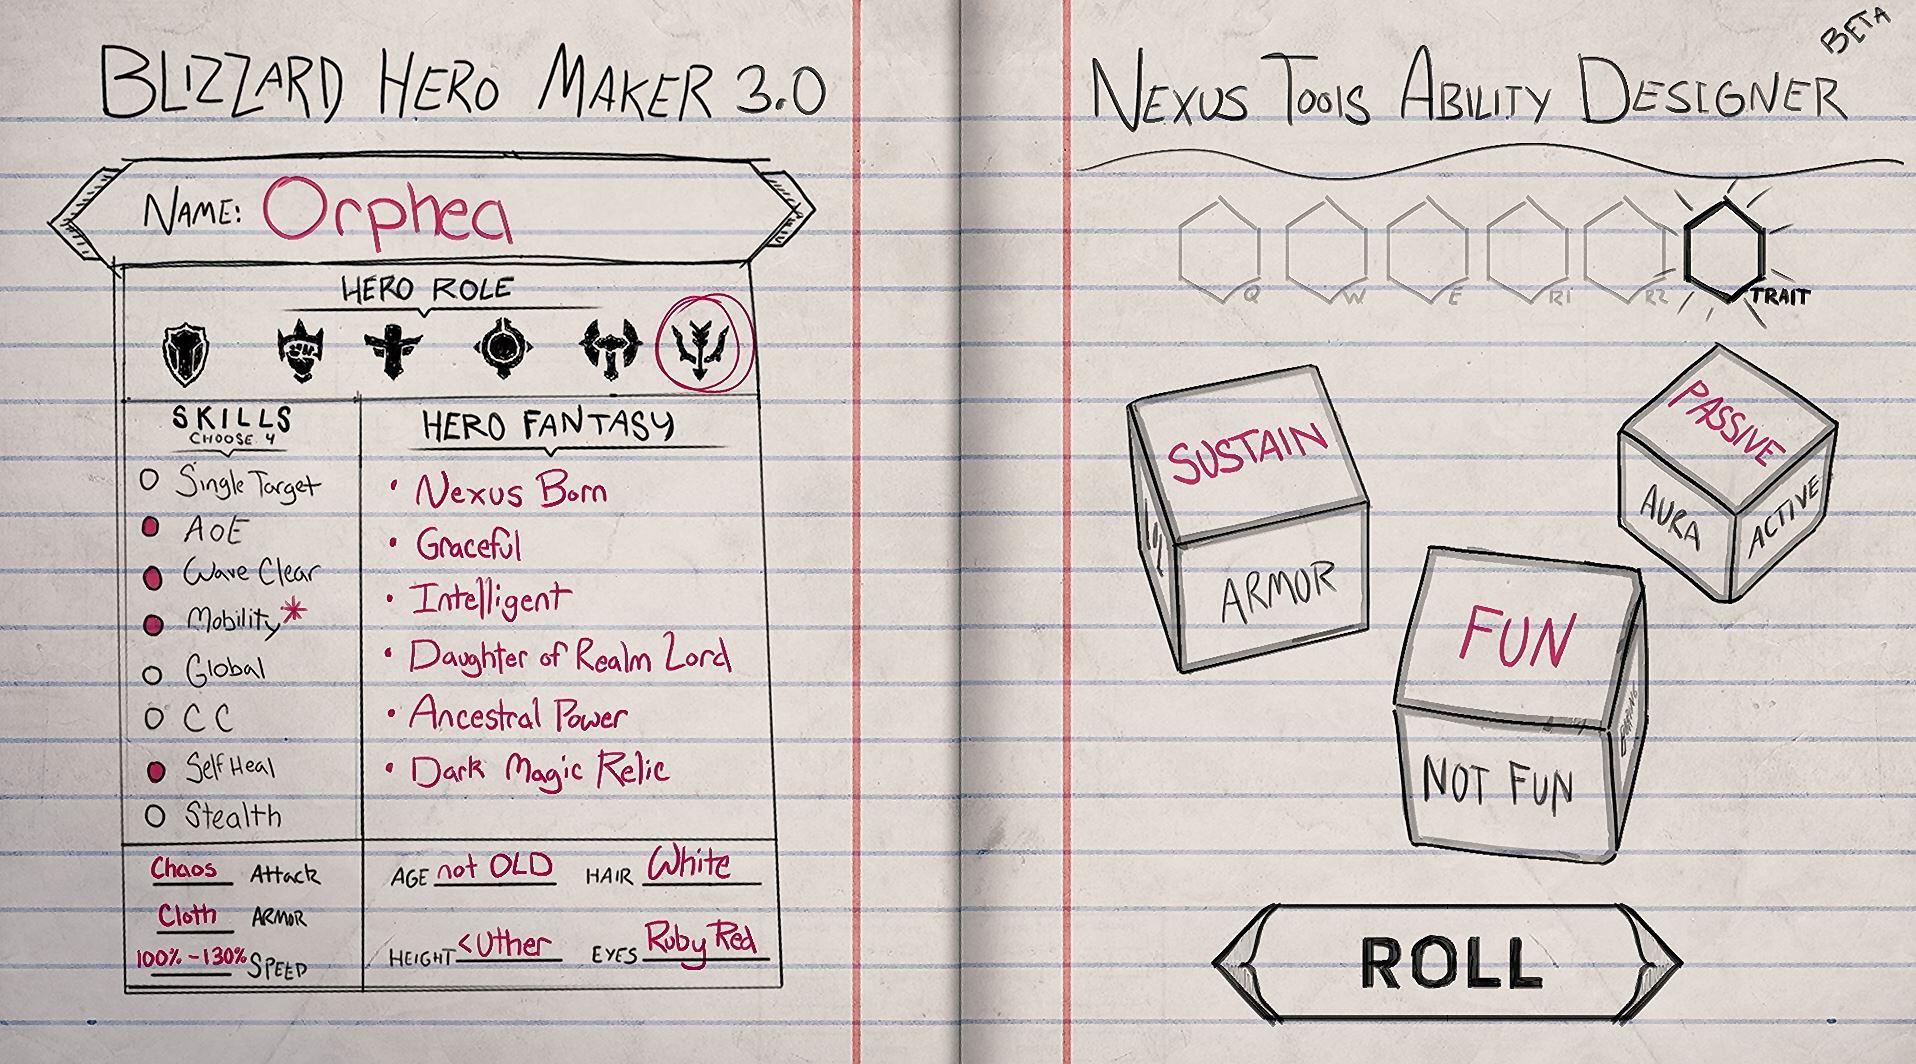 BLIZZARD HERO MAKER 3.0
NAME: Orphea
HERO ROLE
SKILLS
CHOOSE 4
Single Target
AoE
Wave Clear
Mobility*
Global
CC
Self Heal
Stealth
HERO FANTASY
• Nexus Born
• Graceful
• Intelligent
• Daughter of Realm Lord
• Ancestral Power
• Dark Magic Relic
Chaos ATTACK
Cloth ARMOR
100%-130% SPEED
AGE not OLD HAIR White
HEIGHT <Uther EYES Ruby Red
BETA
NEXUS TOOLS ABILITY DESIGNER
Q W E R1 R2 TRAIT
SUSTAIN
ARMOR
PASSIVE
AURA
ACTIVE
FUN
NOT FUN
ROLL